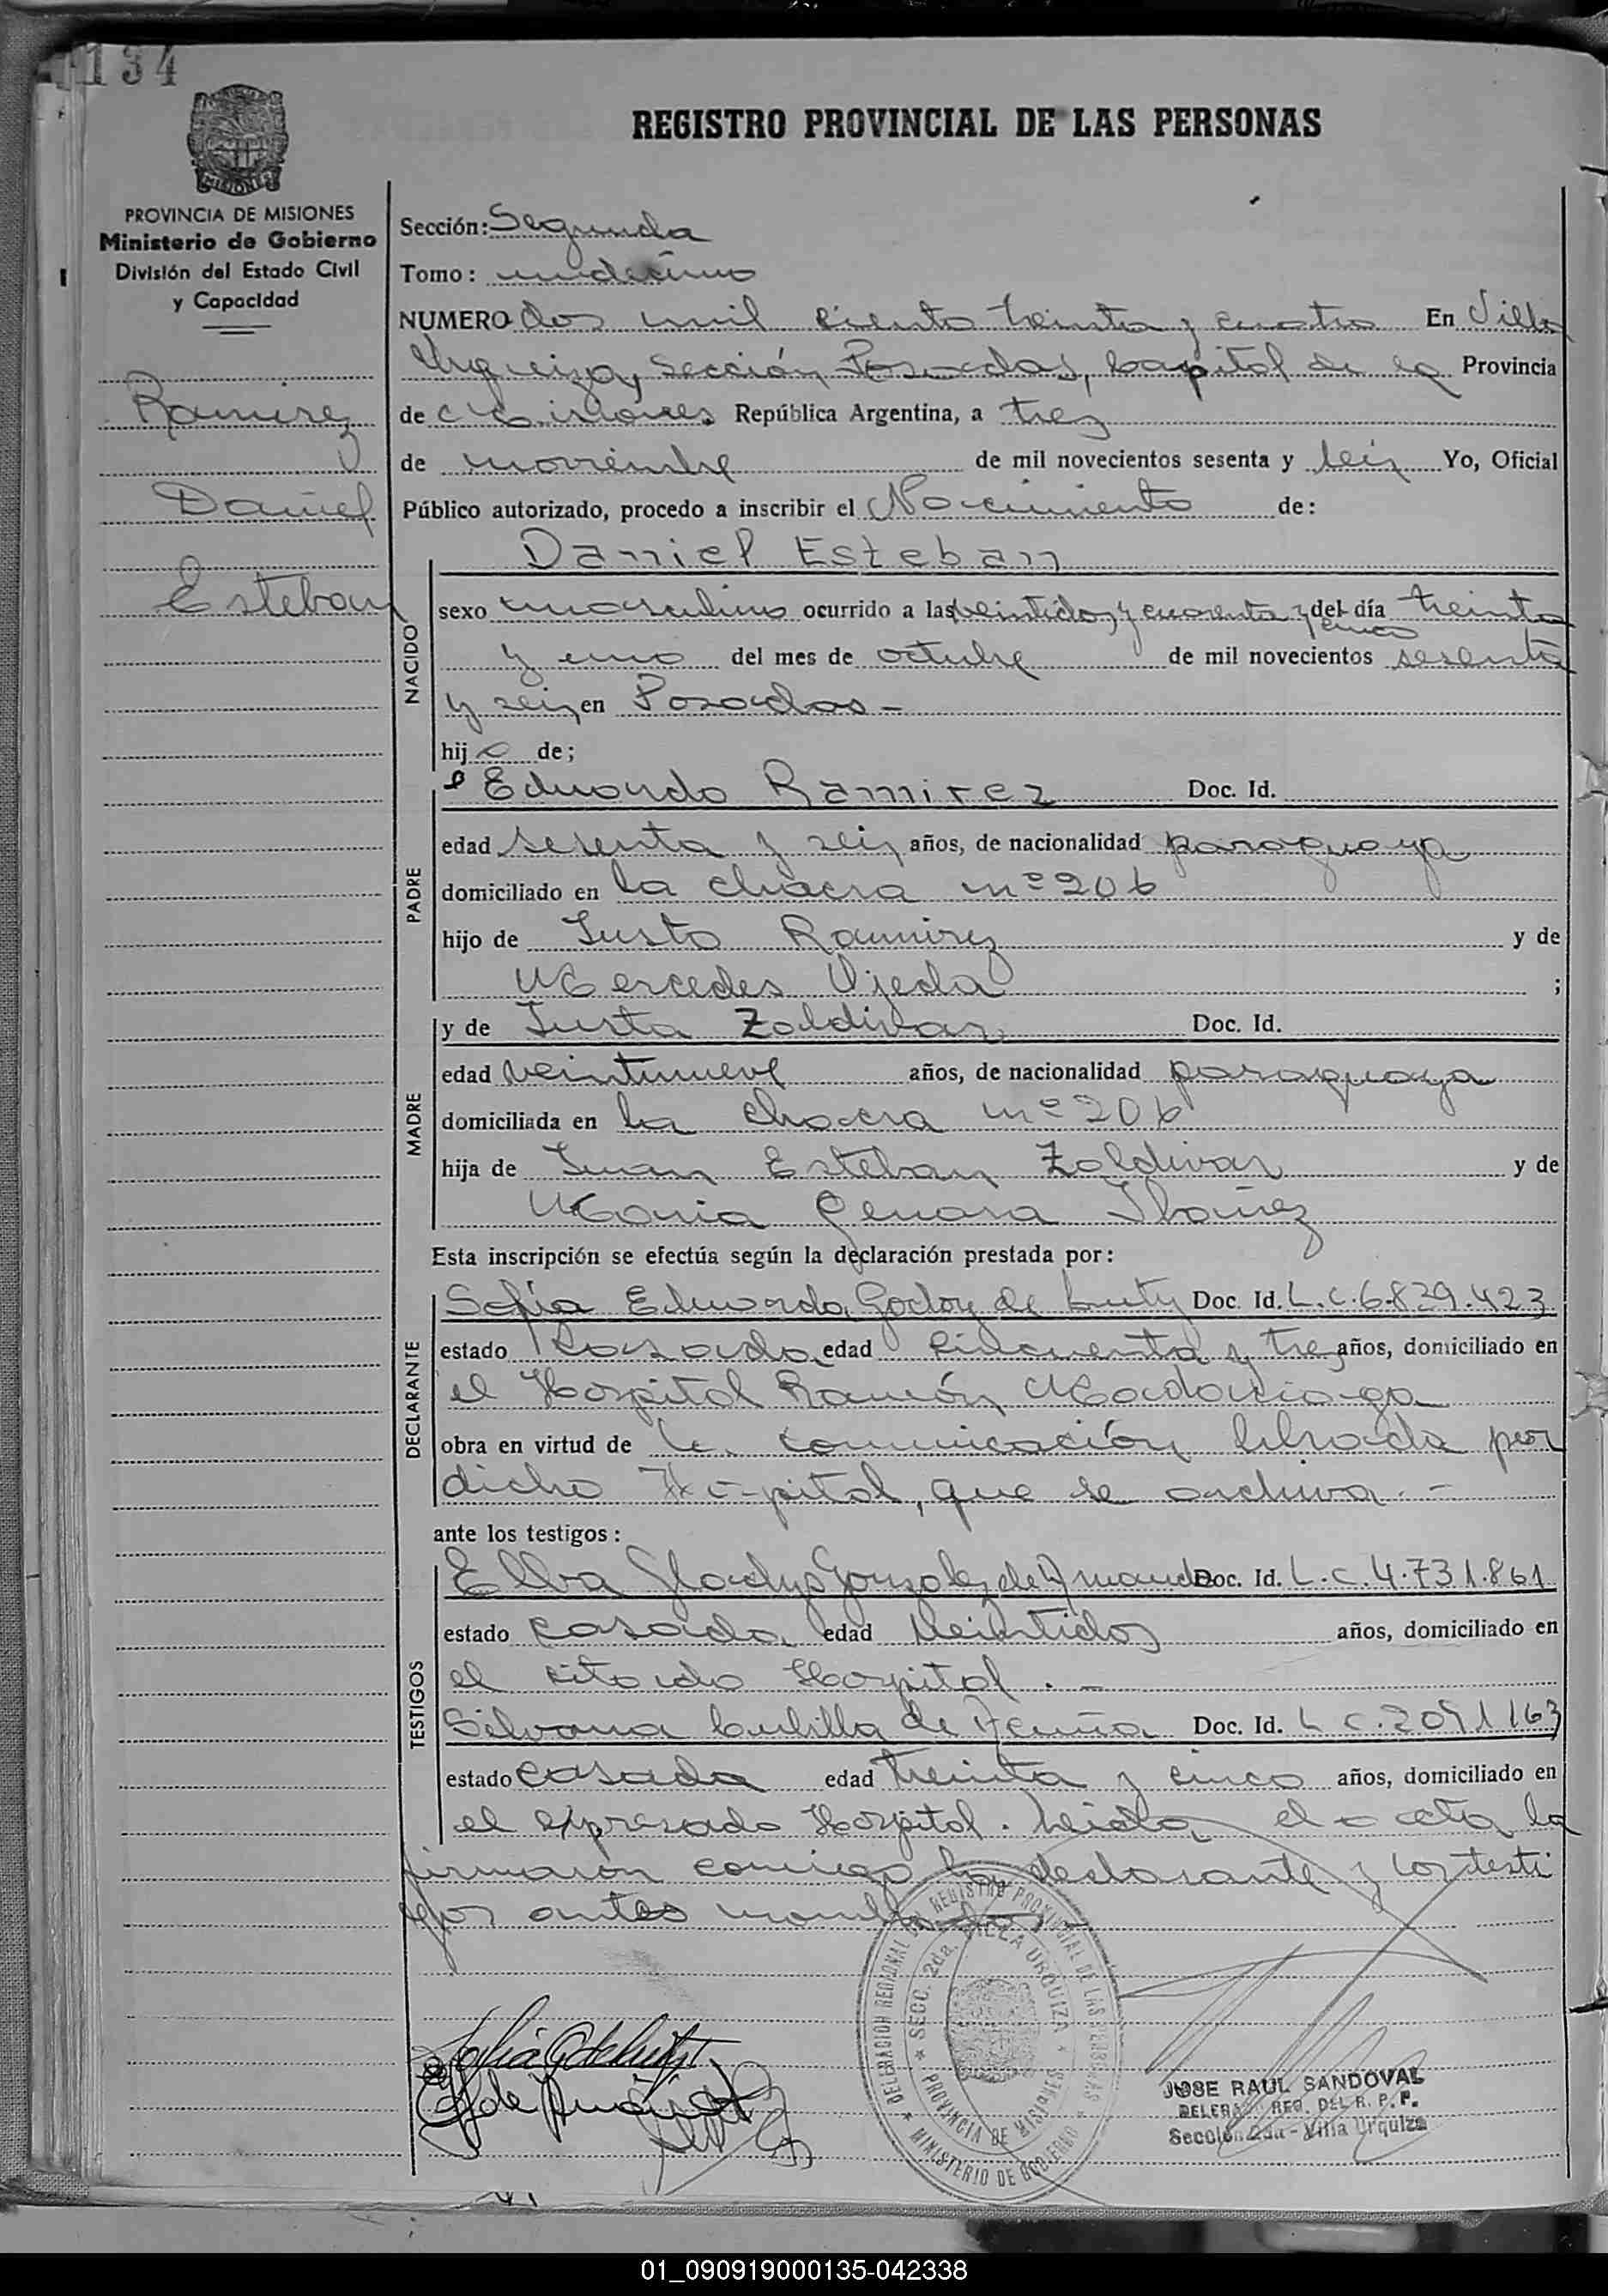 134
REGISTRO PROVINCIAL DE LAS PERSONAS
MISIONES
PROVINCIA DE MISIONES
Ministerio de Gobierno
División del Estado Civil
y Capacidad
Ramirez
Daniel
Esteban
Sección: Segunda
Tomo: undecimo
NUMERO dos mil ciento treinta y cuatro En Villa
Urquiza, Sección Posadas, Capital de la Provincia
de Misiones República Argentina, a tres
de noviembre de mil novecientos sesenta y seis Yo, Oficial
Público autorizado, procedo a inscribir el Nacimiento de:
NACIDO
Daniel Esteban
sexo masculino ocurrido a las veintidos y cuarenta y cinco del día treinta
y uno del mes de octubre de mil novecientos sesenta
y seis en Posadas -
hijo de;
PADRE
Eduardo Ramirez Doc. Id.
edad sesenta y seis años, de nacionalidad paraguaya
domiciliado en la chacra nº 206
hijo de Justo Ramirez y de
Mercedes Ojeda ;
MADRE
y de Justa Zaldivar Doc. Id.
edad veintinueve años, de nacionalidad paraguaya
domiciliada en la chacra nº 206
hija de Juan Esteban Zaldivar y de
Maria Genara Ibañez
Esta inscripción se efectúa según la declaración prestada por:
DECLARANTE
Sofia Eduarda Godoy de Doc. Id. L.C. 6.829.423
estado Casada edad cincuenta y tres años, domiciliado en
el Hospital Ramón Madariaga
obra en virtud de la comunicación librada por
dicho Hospital, que se archiva. -
ante los testigos:
TESTIGOS
Elba Gladys Gonzalez de Doc. Id. L.C. 4.731.861
estado casada edad veintidos años, domiciliado en
el citado Hospital. -
Silvana Cubilla de Acuña Doc. Id. L C. 2091163
estado casada edad treinta y cinco años, domiciliado en
el expresado Hospital. Leida el acta la
firmaron conmigo la declarante y los testi
gos antes
DELEGACION REGIONAL DEL REGISTRO PROVINCIAL DE LAS PERSONAS
SECC. 2da. VILLA URQUIZA
PROVINCIA DE MISIONES
MINISTERIO DE GOBIERNO
JOSE RAUL SANDOVAL
DELEGADO REG. DEL R. P. P.
Sección 2da - Villa Urquiza
01_090919000135-042338